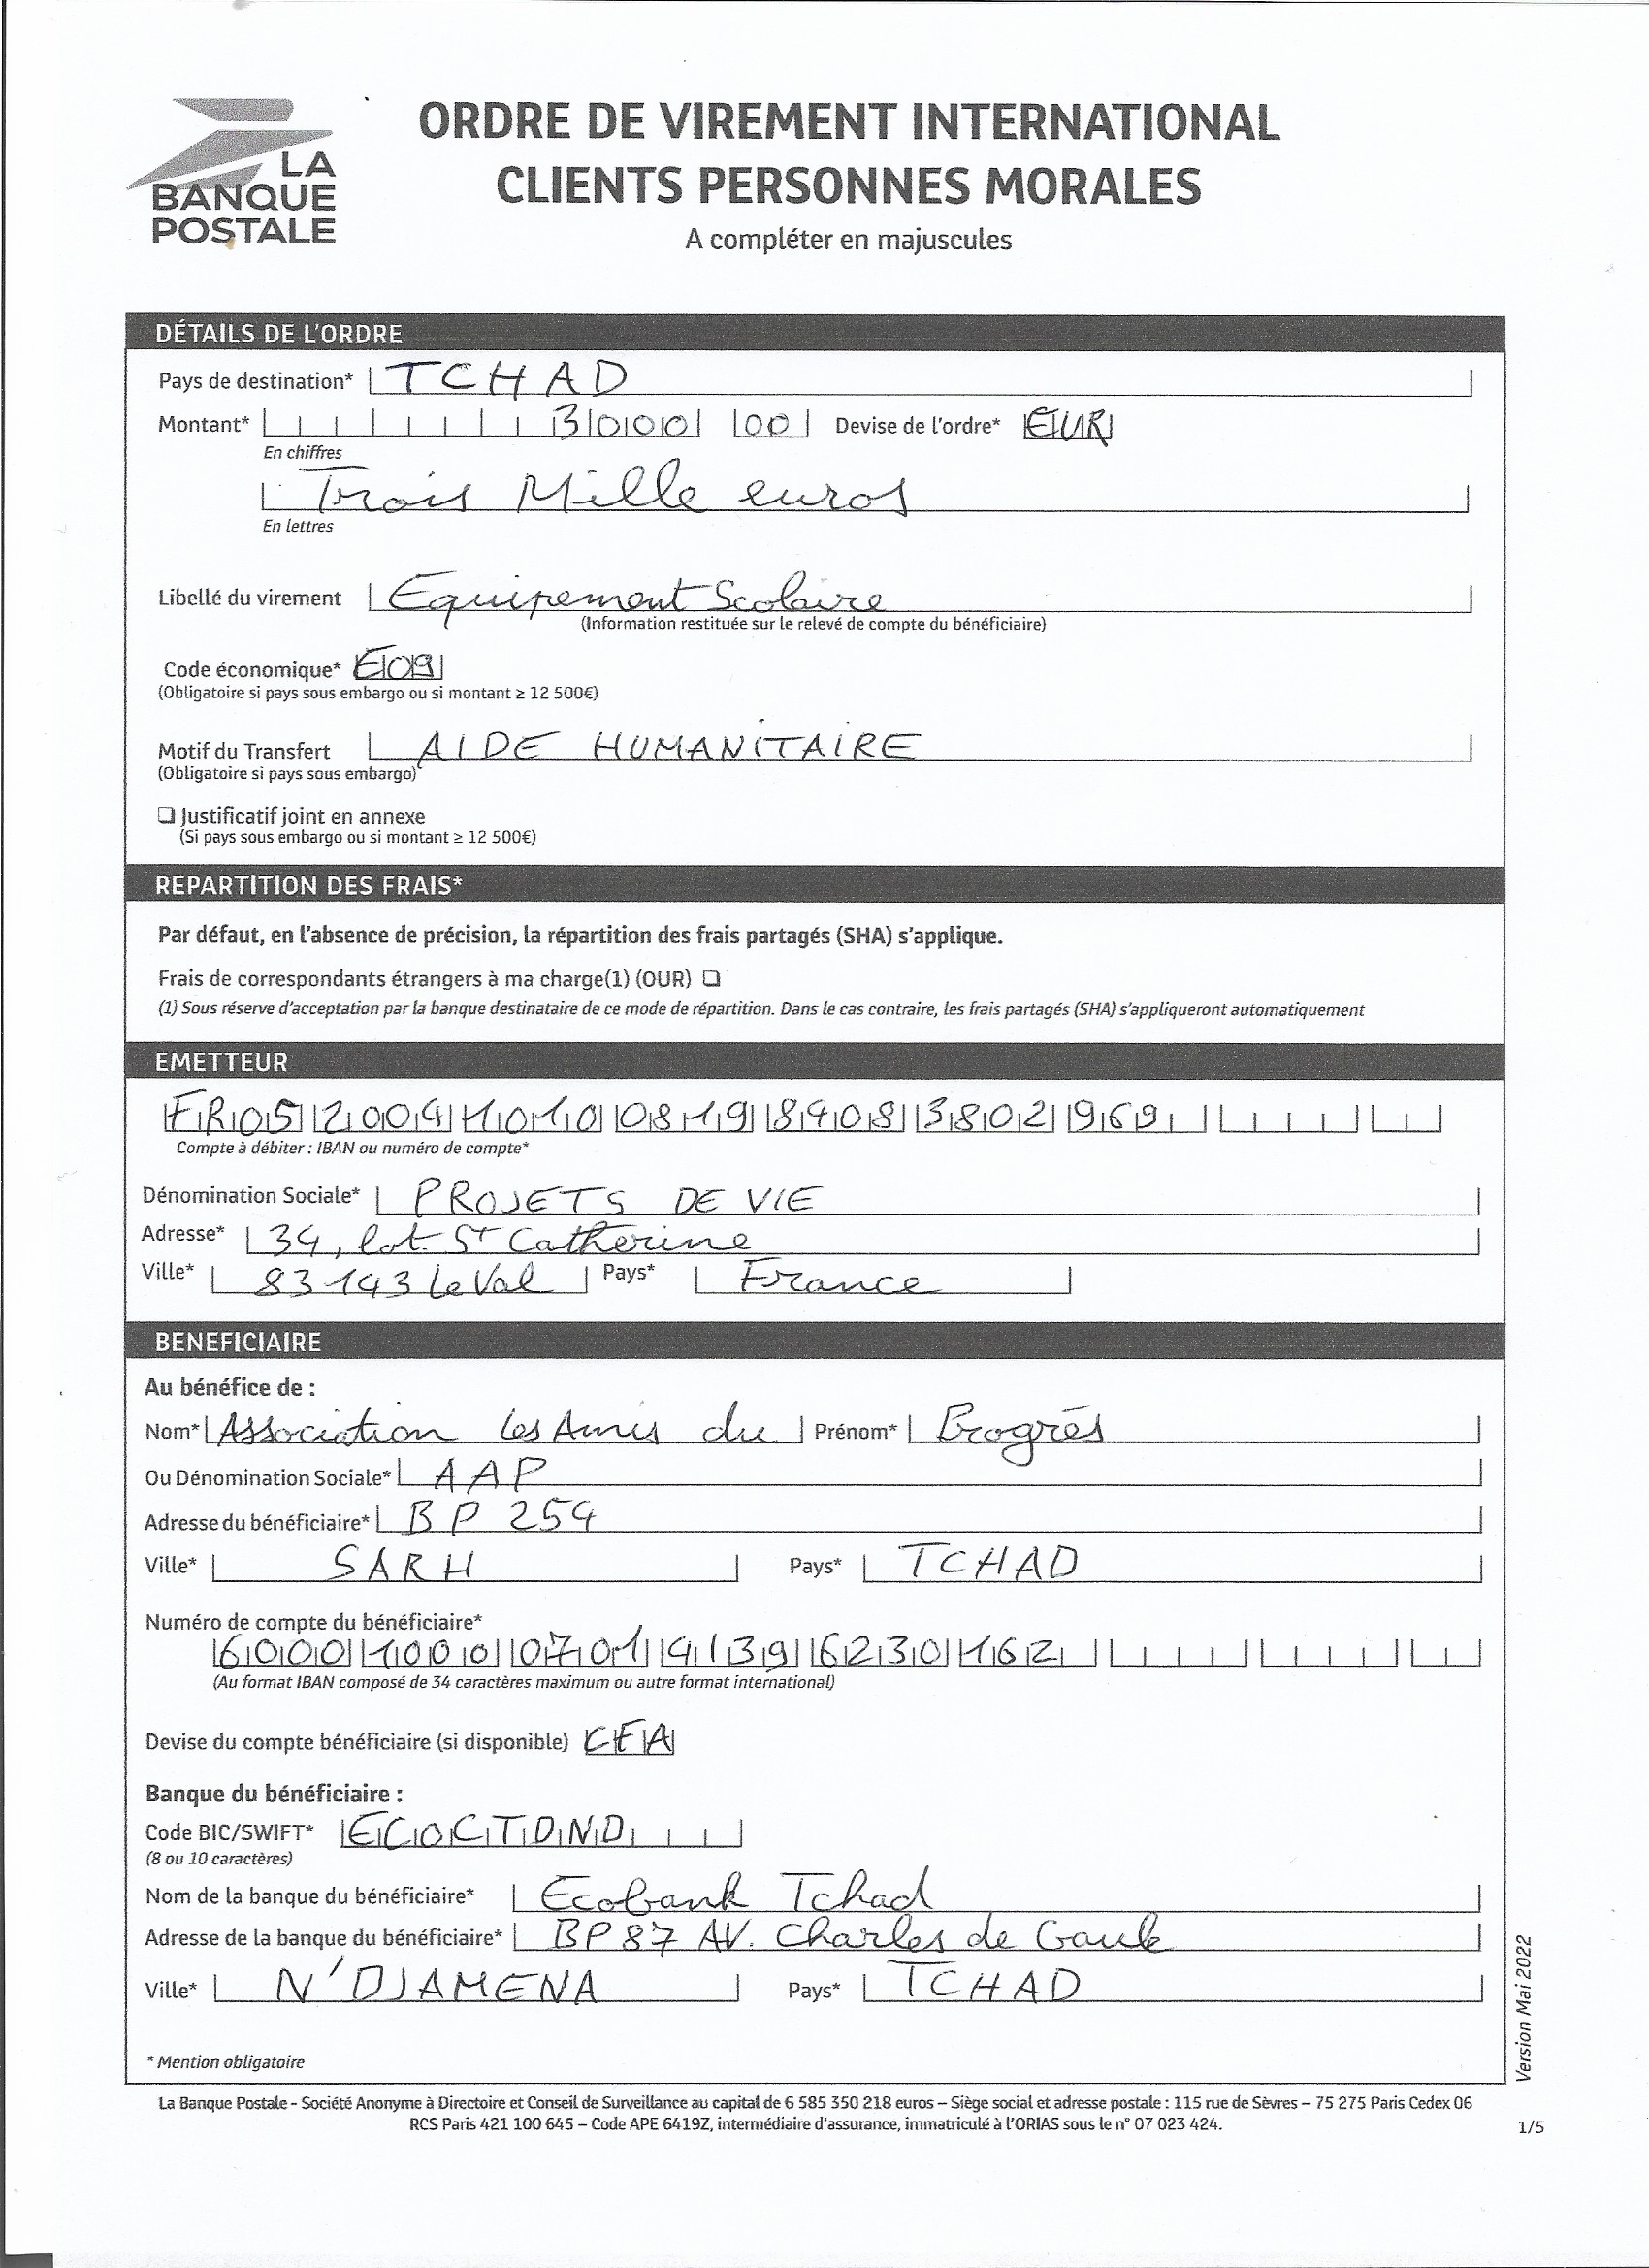 LA
BANQUE
POSTALE
ORDRE DE VIREMENT INTERNATIONAL
CLIENTS PERSONNES MORALES
A compléter en majuscules
DÉTAILS DE L'ORDRE
Pays de destination* TCHAD
Montant* 3000 00 Devise de l'ordre* EUR
En chiffres
Trois Mille euros
En lettres
Libellé du virement Equipement Scolaire
(Information restituée sur le relevé de compte du bénéficiaire)
Code économique* E09
(Obligatoire si pays sous embargo ou si montant ≥ 12 500€)
Motif du Transfert AIDE HUMANITAIRE
(Obligatoire si pays sous embargo)
❑ Justificatif joint en annexe
(Si pays sous embargo ou si montant ≥ 12 500€)
REPARTITION DES FRAIS*
Par défaut, en l'absence de précision, la répartition des frais partagés (SHA) s'applique.
Frais de correspondants étrangers à ma charge(1) (OUR) ❑
(1) Sous réserve d'acceptation par la banque destinataire de ce mode de répartition. Dans le cas contraire, les frais partagés (SHA) s'appliqueront automatiquement
EMETTEUR
FR05 2004 1010 0819 8408 3802 969
Compte à débiter : IBAN ou numéro de compte*
Dénomination Sociale* PROJETS DE VIE
Adresse* 34, lot. St Catherine
Ville* 83143 Le Val Pays* France
BENEFICIAIRE
Au bénéfice de :
Nom* Association Les Amis du Prénom* Progrès
Ou Dénomination Sociale* AAP
Adresse du bénéficiaire* BP 254
Ville* SARH Pays* TCHAD
Numéro de compte du bénéficiaire*
6000 1000 0701 4139 6230 162
(Au format IBAN composé de 34 caractères maximum ou autre format international)
Devise du compte bénéficiaire (si disponible) CFA
Banque du bénéficiaire :
Code BIC/SWIFT* ECOCTDND
(8 ou 10 caractères)
Nom de la banque du bénéficiaire* Ecobank Tchad
Adresse de la banque du bénéficiaire* BP 87 AV. Charles de Gaule
Ville* N'DJAMENA Pays* TCHAD
* Mention obligatoire
Version Mai 2022
La Banque Postale - Société Anonyme à Directoire et Conseil de Surveillance au capital de 6 585 350 218 euros – Siège social et adresse postale : 115 rue de Sèvres – 75 275 Paris Cedex 06
RCS Paris 421 100 645 – Code APE 6419Z, intermédiaire d'assurance, immatriculé à l'ORIAS sous le n° 07 023 424.
1/5